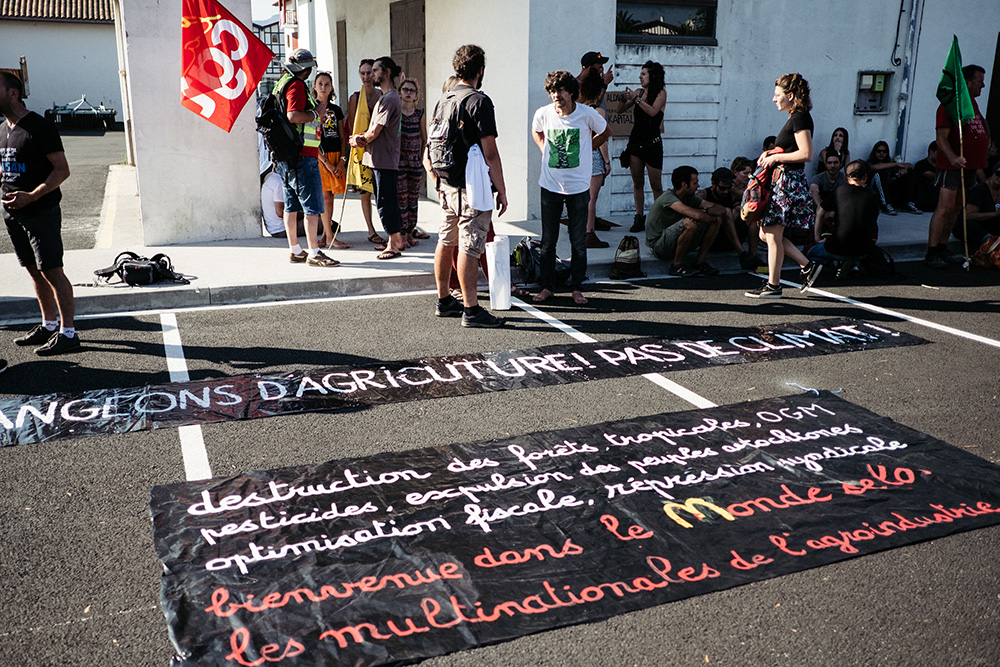 cgt
ALDA
KAPITAL
ANGEONS D'AGRICUTURE! PAS DE CLIMAT!
destruction des forêts tropicales, OGM
pesticides, expulsion des peuples autochtones
optimisation fiscale, répression syndicale
bienvenue dans le Monde selo
les multinationales de l'agroindustrie